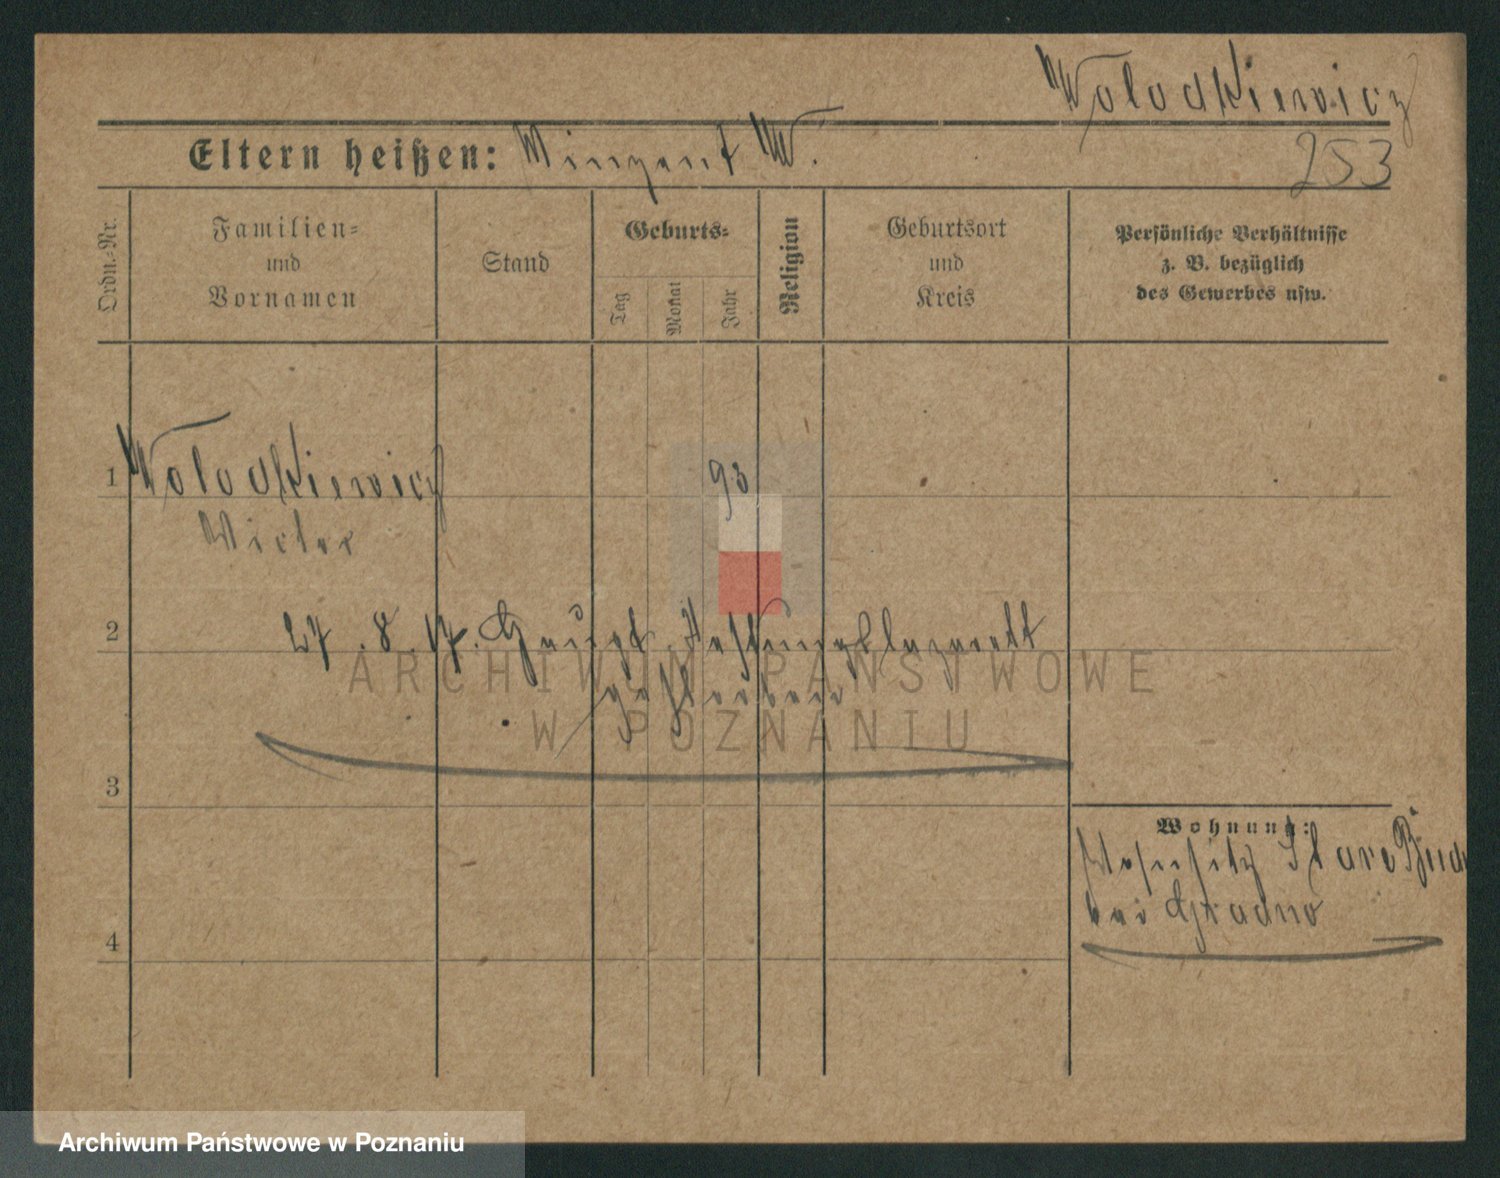 Wolodkiewicz
Eltern heißen: Vinzent W.
253
Ordn.-Nr.
Familien-
und
Vornamen
Stand
Geburts-
Tag
Monat
Jahr
Religion
Geburtsort
und
Kreis
Persönliche Verhältnisse
z. B. bezüglich
des Gewerbes usw.
1 Wolodkiewicz 93
Victor
2 27.8.17. Haupt-Festungslazarett
gestorben
ARCHIWUM PAŃSTWOWE
W POZNANIU
3
Wohnung:
Wohnsitz Stare
bei Grodno
4
Archiwum Państwowe w Poznaniu